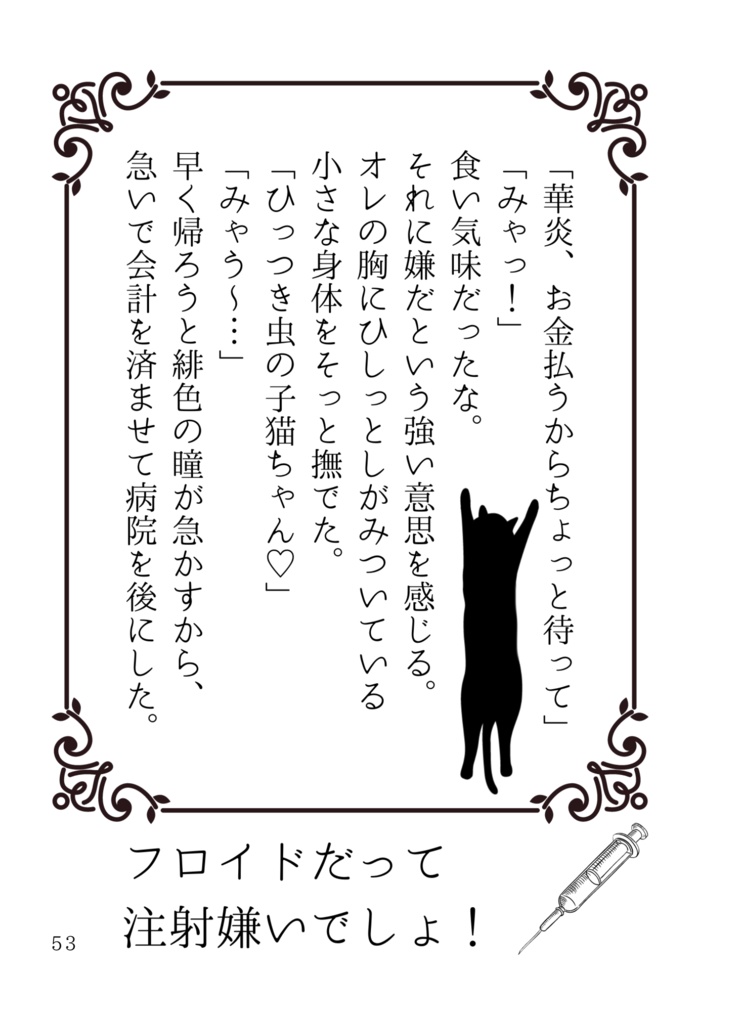 「華炎、お金払うからちょっと待って」
「みゃっ！」
食い気味だったな。
それに嫌だという強い意思を感じる。
オレの胸にひしっとしがみついている
小さな身体をそっと撫でた。
「ひっつき虫の子猫ちゃん♡」
「みゃう～…」
早く帰ろうと緋色の瞳が急かすから、
急いで会計を済ませて病院を後にした。
フロイドだって
注射嫌いでしょ！
53